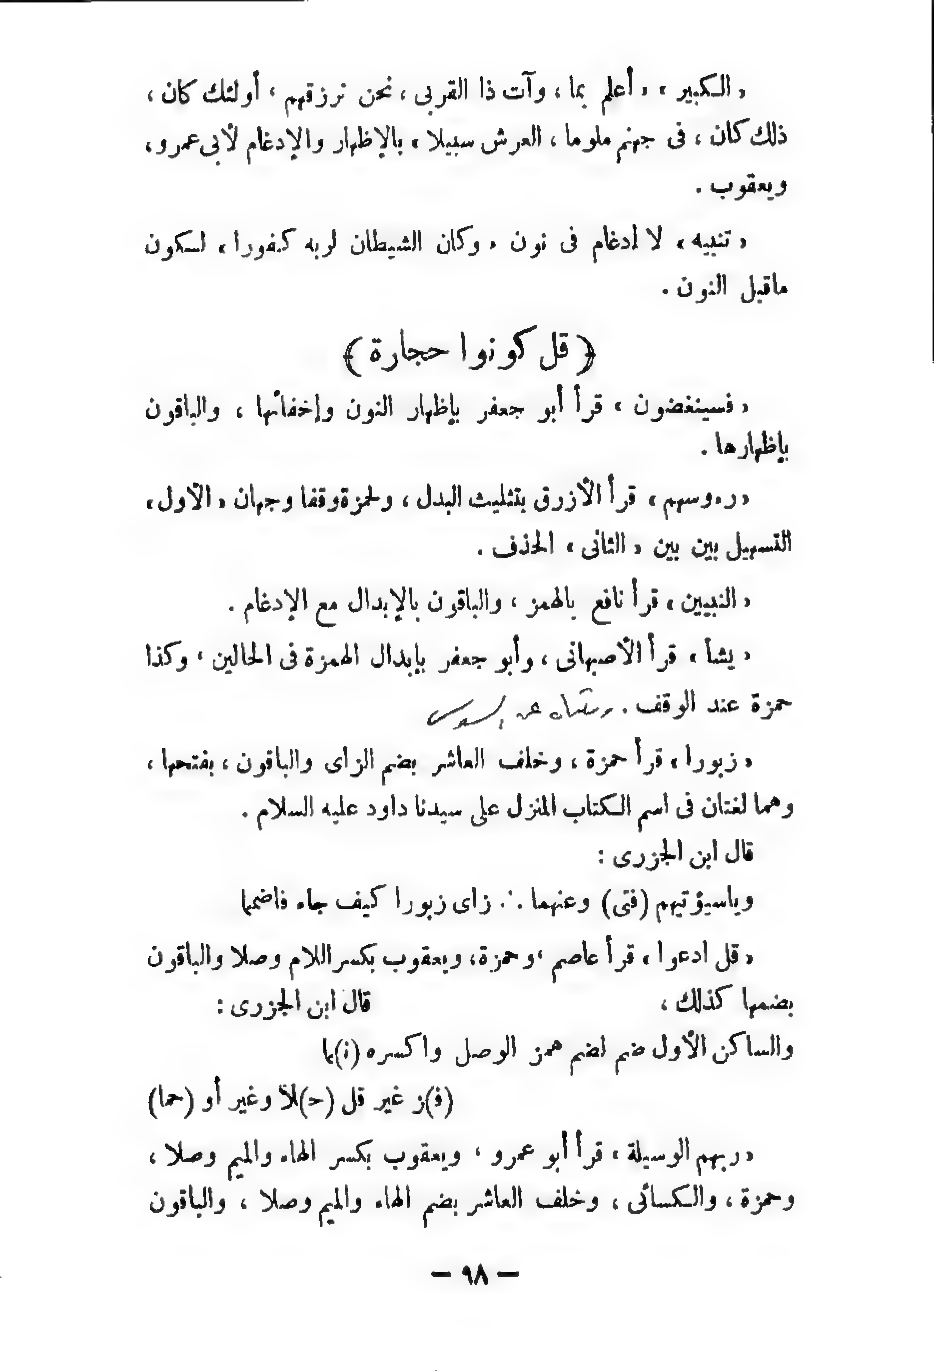 « الكبير » « أعلم بما ، وآت ذا القربى ، نحن نرزقهم ، أولئك كان ،
ذلك كان ، فى جهنم ملوما ، العرش سبيلا » بالإظهار والإدغام لأبى عمرو ،
ويعقوب .
« تنبيه » لا إدغام فى نون « وكان الشيطان لربه كفورا » لسكون
ماقبل النون .
﴿ قل كونوا حجارة ﴾
« فسينغضون » قرأ أبو جعفر بإظهار النون وإخفائها ، والباقون
بإظهارها .
« رءوسهم » قرأ الأزرق بتثليث البدل ، ولحمزة وقفا وجهان « الأول »
التسهيل بين بين « الثانى » الحذف .
« النبيين » قرأ نافع بالهمز ، والباقون بالإبدال مع الإدغام .
« يشأ » قرأ الأصبهانى ، وأبو جعفر بإبدال الهمزة فى الحالين ، وكذا
حمزة عند الوقف .
« زبورا » قرأ حمزة ، وخلف العاشر بضم الزاى والباقون ، بفتحها ،
وهما لغتان فى اسم الكتاب المنزل على سيدنا داود عليه السلام .
قال ابن الجزرى :
وياسيؤتيهم (فتى) وعنهما .·. زاى زبورا كيف جاء فاضمما
« قل ادعوا » قرأ عاصم ، وحمزة، ويعقوب بكسر اللام وصلا والباقون
بضمها كذلك ، قال ابن الجزرى :
والساكن الأول ضم لضم همز الوصل واكسره (ن)ما
(ف)ز غير قل (ح)لا وغير أو (حما)
« ربهم الوسيلة » قرأ أبو عمرو ، ويعقوب بكسر الهاء والميم وصلا ،
وحمزة ، والكسائى ، وخلف العاشر بضم الهاء والميم وصلا ، والباقون
— ٩٨ —